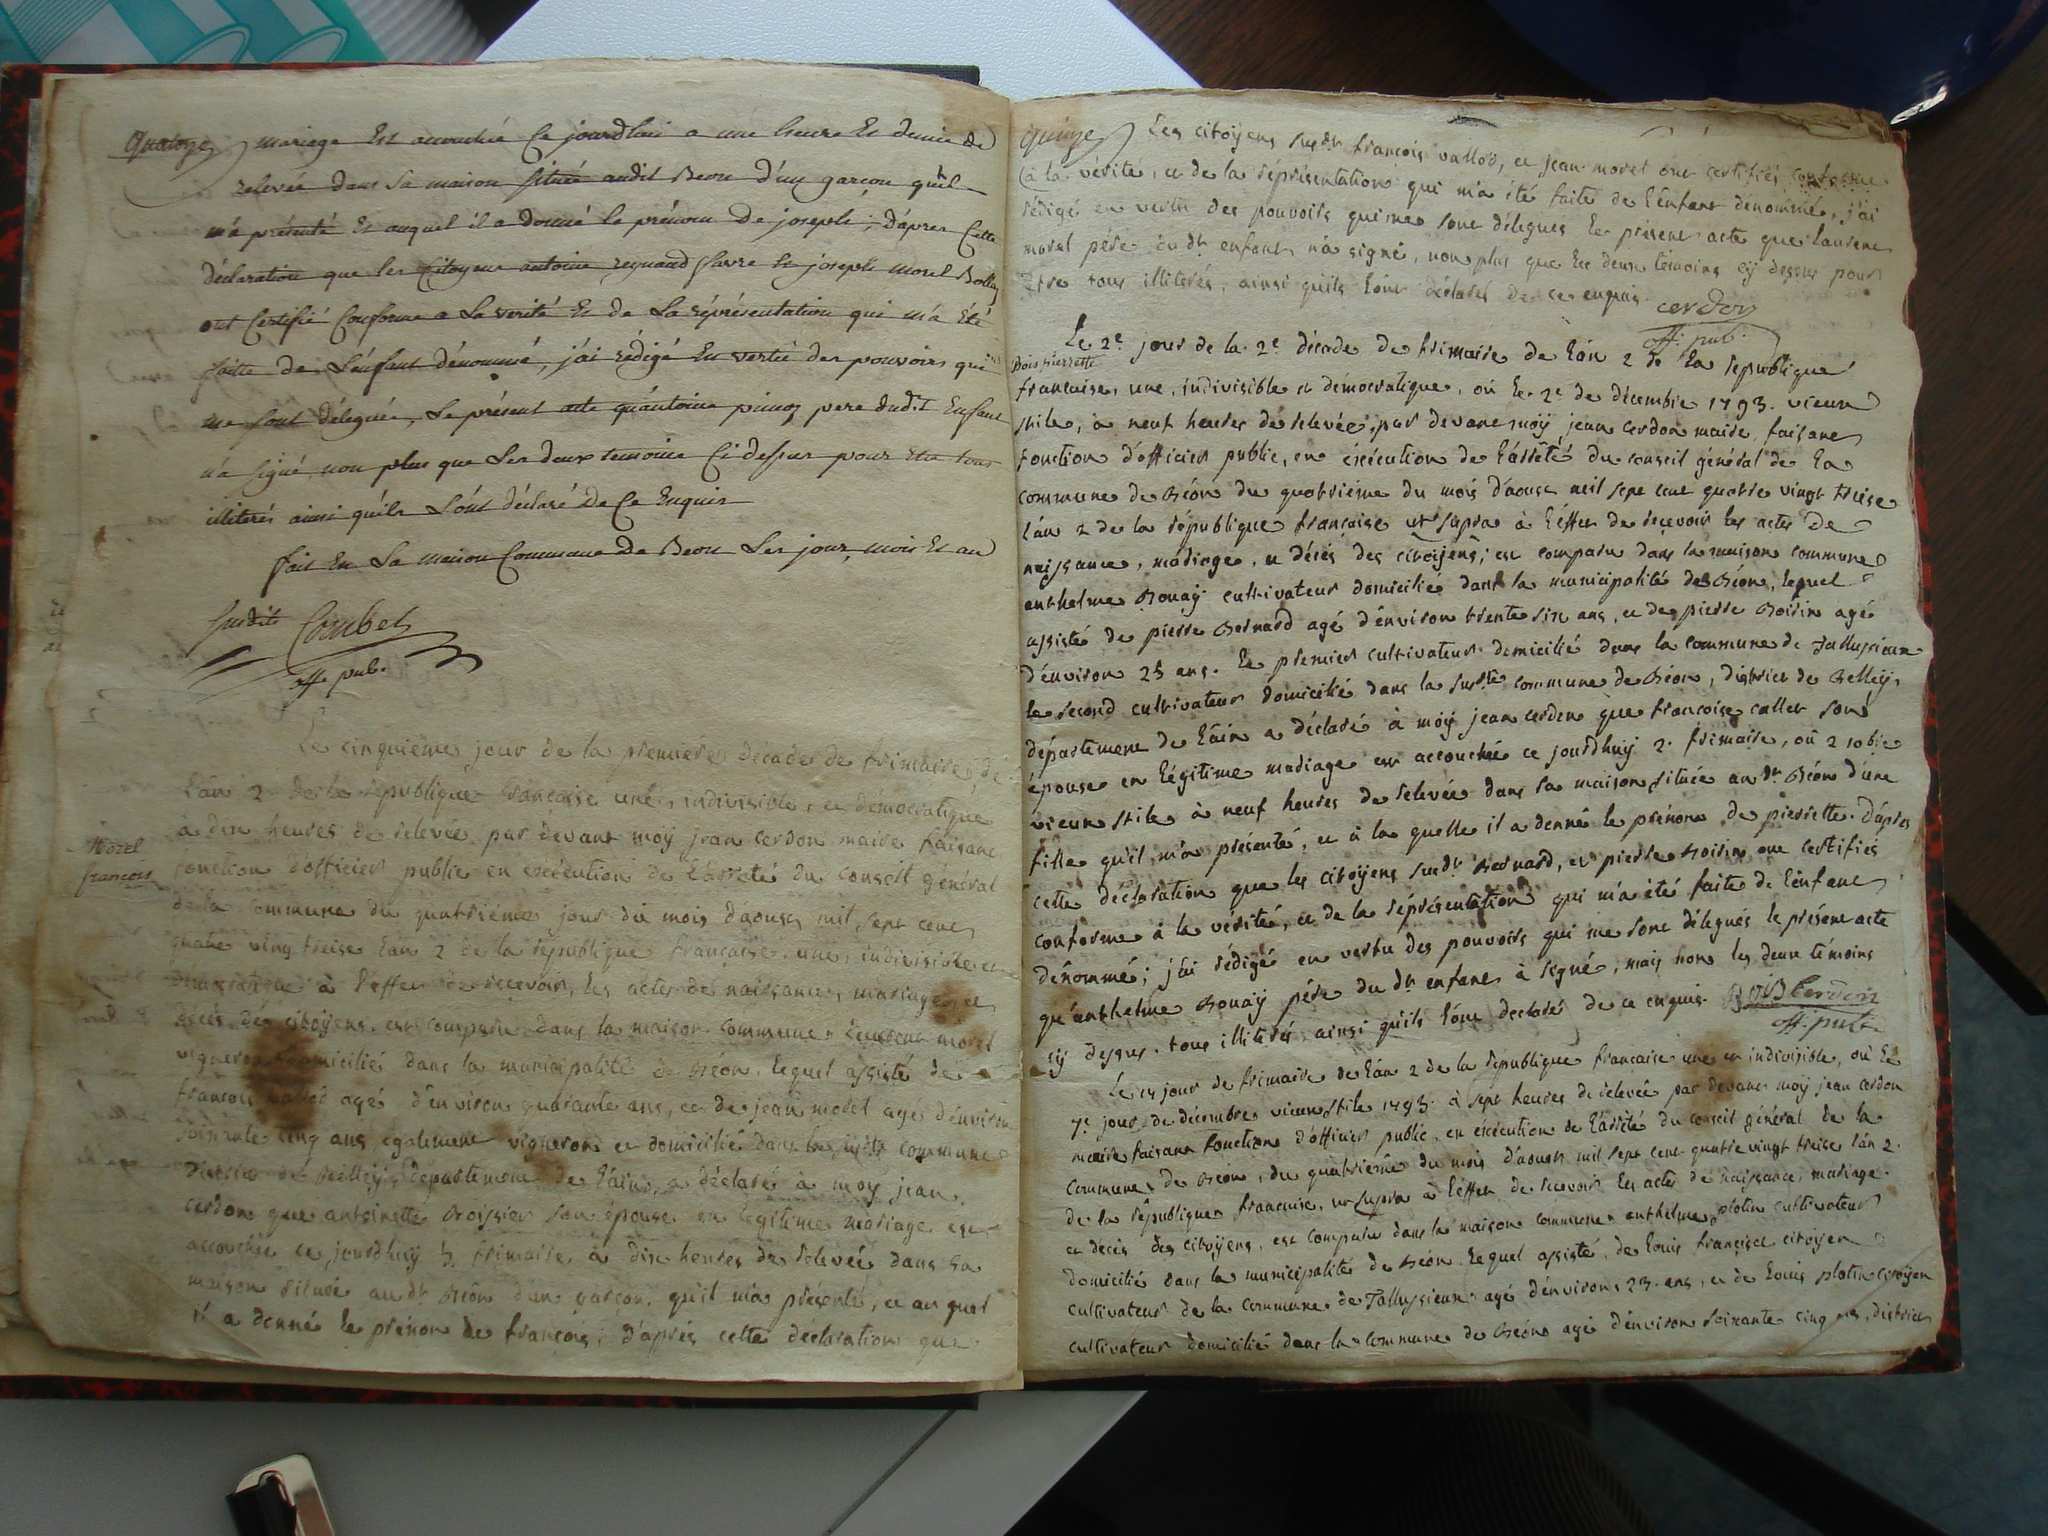 quatorze mariage Est accouchée Ce jourdhui a une heure Et demie de
relevée dans Sa maison Située audit Beon d'un garçon qu'il
m'a présenté Et auquel il a donné le prénom De joseph; D'apres Cette
Déclaration que les Citoyens antoine reynaud Et joseph morel
ont Certifié Conforme a La verité Et de La réprésentation qui m'a Eté
faitte de L'enfant dénommé, j'ai rédigé En vertu des pouvoirs qui
me Sont délegués, Le présent acte qu'antoine pere dudit Enfant
n'a Signé, non plus que Les deux temoins Ci dessus pour Etre tous
illiterés ainsi qu'ils L'ont déclaré De Ce Enquis
fait En La maison Commune De Beon Les jour, mois Et an
Susdits Combet
off. pub.
Le cinquiême jour de la premiére décade de frimaire, de
l'ân 2 de la république francaise une, indivisible, et démocratique
à dix heures de relevée par devant moÿ jean cerdon maire faisant
Morel
françois
fonction d'officier public en exécution de l'arreté du conseil général
de la commune du quatriéme jour du mois d'aoust mil sept cent
quatre vingt treize l'an 2 de la république française, une, indivisible et
démocratique à l'effet de recevoir, les actes de naissance, mariage et
décés des citoyens, est comparu dans la maison commune Laurent morel
vigneron domicilié dans la municipalité de Béon, lequel assisté de
françois vallod agé d'énviron quarante ans, et de jean morel agé d'énviron
soixante cinq ans également vigneron et domicilié dans la susdte commune
district de Bellëy, département de l'âin, a déclaré à moy jean
cerdon que antoinette Broissier son épouse en légitime mariage est
accouchée ce jourdhuÿ 5 frimaire, à dix heures de relevée dans sa
maison située au dt Béon d'un garcon, qu'il m'a présenté, et au quel
il a donné le prénom de françois; d'aprés cette déclaration que
quinze Les citoÿens susdt françois vallod, et jean morel ont certifiés conforme
à la vérité, et de la répresentation qui m'a été faite de l'énfant dénommé, j'ai
rédigé en vertu des pouvoirs qui me sont délegués le présent acte que laurent
morel pére du dt enfant n'a signé, non plus que les deux témoins cÿ dessus pour
être tous illiterés, ainsi qu'ils l'ont déclarés de ce enquis. cerdon
off. pub.
Le 2e jour de la 2e décade de frimaire de l'ân 2 de la république
Bois pierrette
francaise, une, indivisible et démocratique, où le 2e de décembre 1793. vieux
stile, à neuf heures de relevée, par devant moÿ jean cerdon maire, faisant
fonction d'officier public, en éxécution de l'arrêté du conseil général de la
commune de Béon du quatriéme du mois d'aoust mil sept cent quatre vingt treise
l'ân 2 de la république française ut supra à l'éffet de recevoir les actes de
naissance, mariage, et décés des citoÿens; est comparu dans la maison commune
anthelme Bouaÿ cultivateur domicilié dans la municipalité de Béon, lequel
assisté de pierre Bernard agé d'énviron trente six ans, et de pierre Boisin agé
d'énviron 25 ans. le premier cultivateur domicilié dans la commune de Tallissieux
le second cultivateur domicilié dans la susdte commune de Béon, district de Bellëy,
département de l'âin a déclaré à moÿ jean cerdon que francoise callet son
épouse en légitime mariage est accouchée ce jourdhuÿ 2. frimaire, où 2 10bre
vieux stile à neuf heures de relevée dans sa maison, située au dt Béon d'une
fille qu'il m'a présenté, et à la quelle il a donné le prénom de pierrette. d'aprés
cette déclaration que les citoÿens susdt Bernard, et pierre Boisin ont certifiés
conforme à la vérité, et de la réprésentation qui m'a été faite de l'énfant
dénommé; j'ai rédigé en vertu des pouvoirs qui me sont délegués le présent acte
qu'anthelme Bouaÿ pére du dt enfant à signé, mais non les deux témoins
cÿ dessus. tous illiterés ainsi qu'ils l'ont declaré de ce enquis. Cerdon
off. pub.
Le 14 jour de frimaire de l'ân 2 de la république francaise une et indivisible, où le
7e jour de décembre vieux stile 1793. à sept heures de relevée par devant moÿ jean cerdon
maire faisant fonction d'officier public, en éxécution de l'arrêté du conseil général de la
commune de Béon, du quatriéme du mois d'aoust mil sept cent quatre vingt treise l'ân 2.
de la république francaise, ut supra à l'éffet de recevoir les actes de naissance, mariage.
et décés des citoÿens, est comparu dans la maison commune anthelme plotin cultivateur
domicilié dans la municipalité de Béon lequel assisté, de louis citoÿen
cultivateur de la commune de Tallissieux agé d'énviron 23. ans, et de louis plotin citoÿen
cultivateur domicilié dans la commune de Béon agé d'énviron soixante cinq ans, district